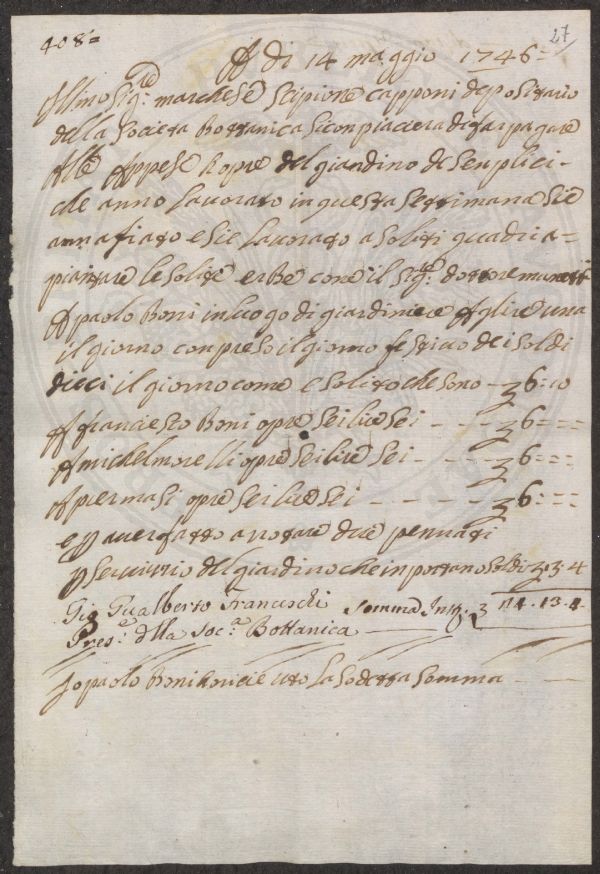 408=
27
A di 14 maggio 1746=
Illmo Sigre: marchese Scipione capponi depositario
della Società Bottanica Si conpiacera di far pagare
Alle Appese 4 opre del giardino de Senplici-
che anno lavorato in questa Settimana Sie
annafiato e Sie lavorato a Soliti quadri a=
piantare le Solite erbe cone il Sigre: dottore manetti
A paolo Boni in luogo di giardiniere A lire una
il giorno conpreso il giorno festivo dei Soldi
dieci il giorno come e Solito che Sono - 6=10
A Franciesco Boni opre Sei lire Sei - - - 6=
A michel morelli opre Sei lire Sei - - - 6=
A pier masi opre Sei lire Sei - - - - 6=
e p aver fatto arrotare due pennati
p Servitio del giardino che inportano Soldi 3 4
Gio Gualberto Franceschi Somma In tt. 14.13.4
Pres.e dlla Soc.a Bottanica
Io paolo Boni ho ricieuto la Sodetta Somma